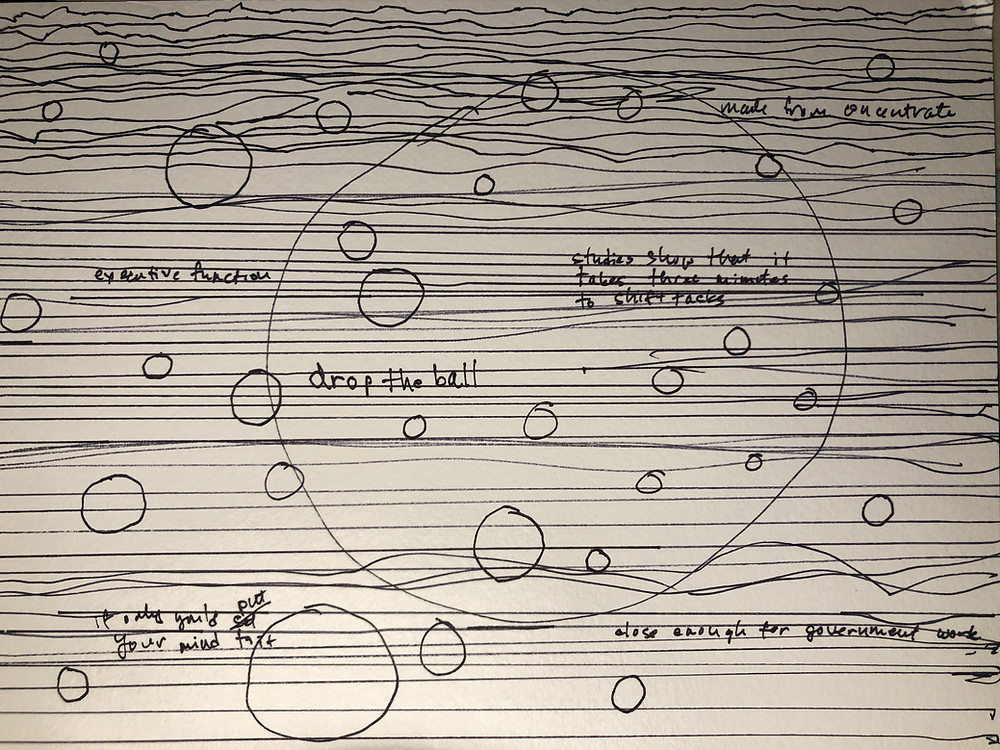 made from concentrate
executive function
studies show that it
takes three minutes
to shift tacks
drop the ball
if only you'd put
your mind to it
close enough for government work